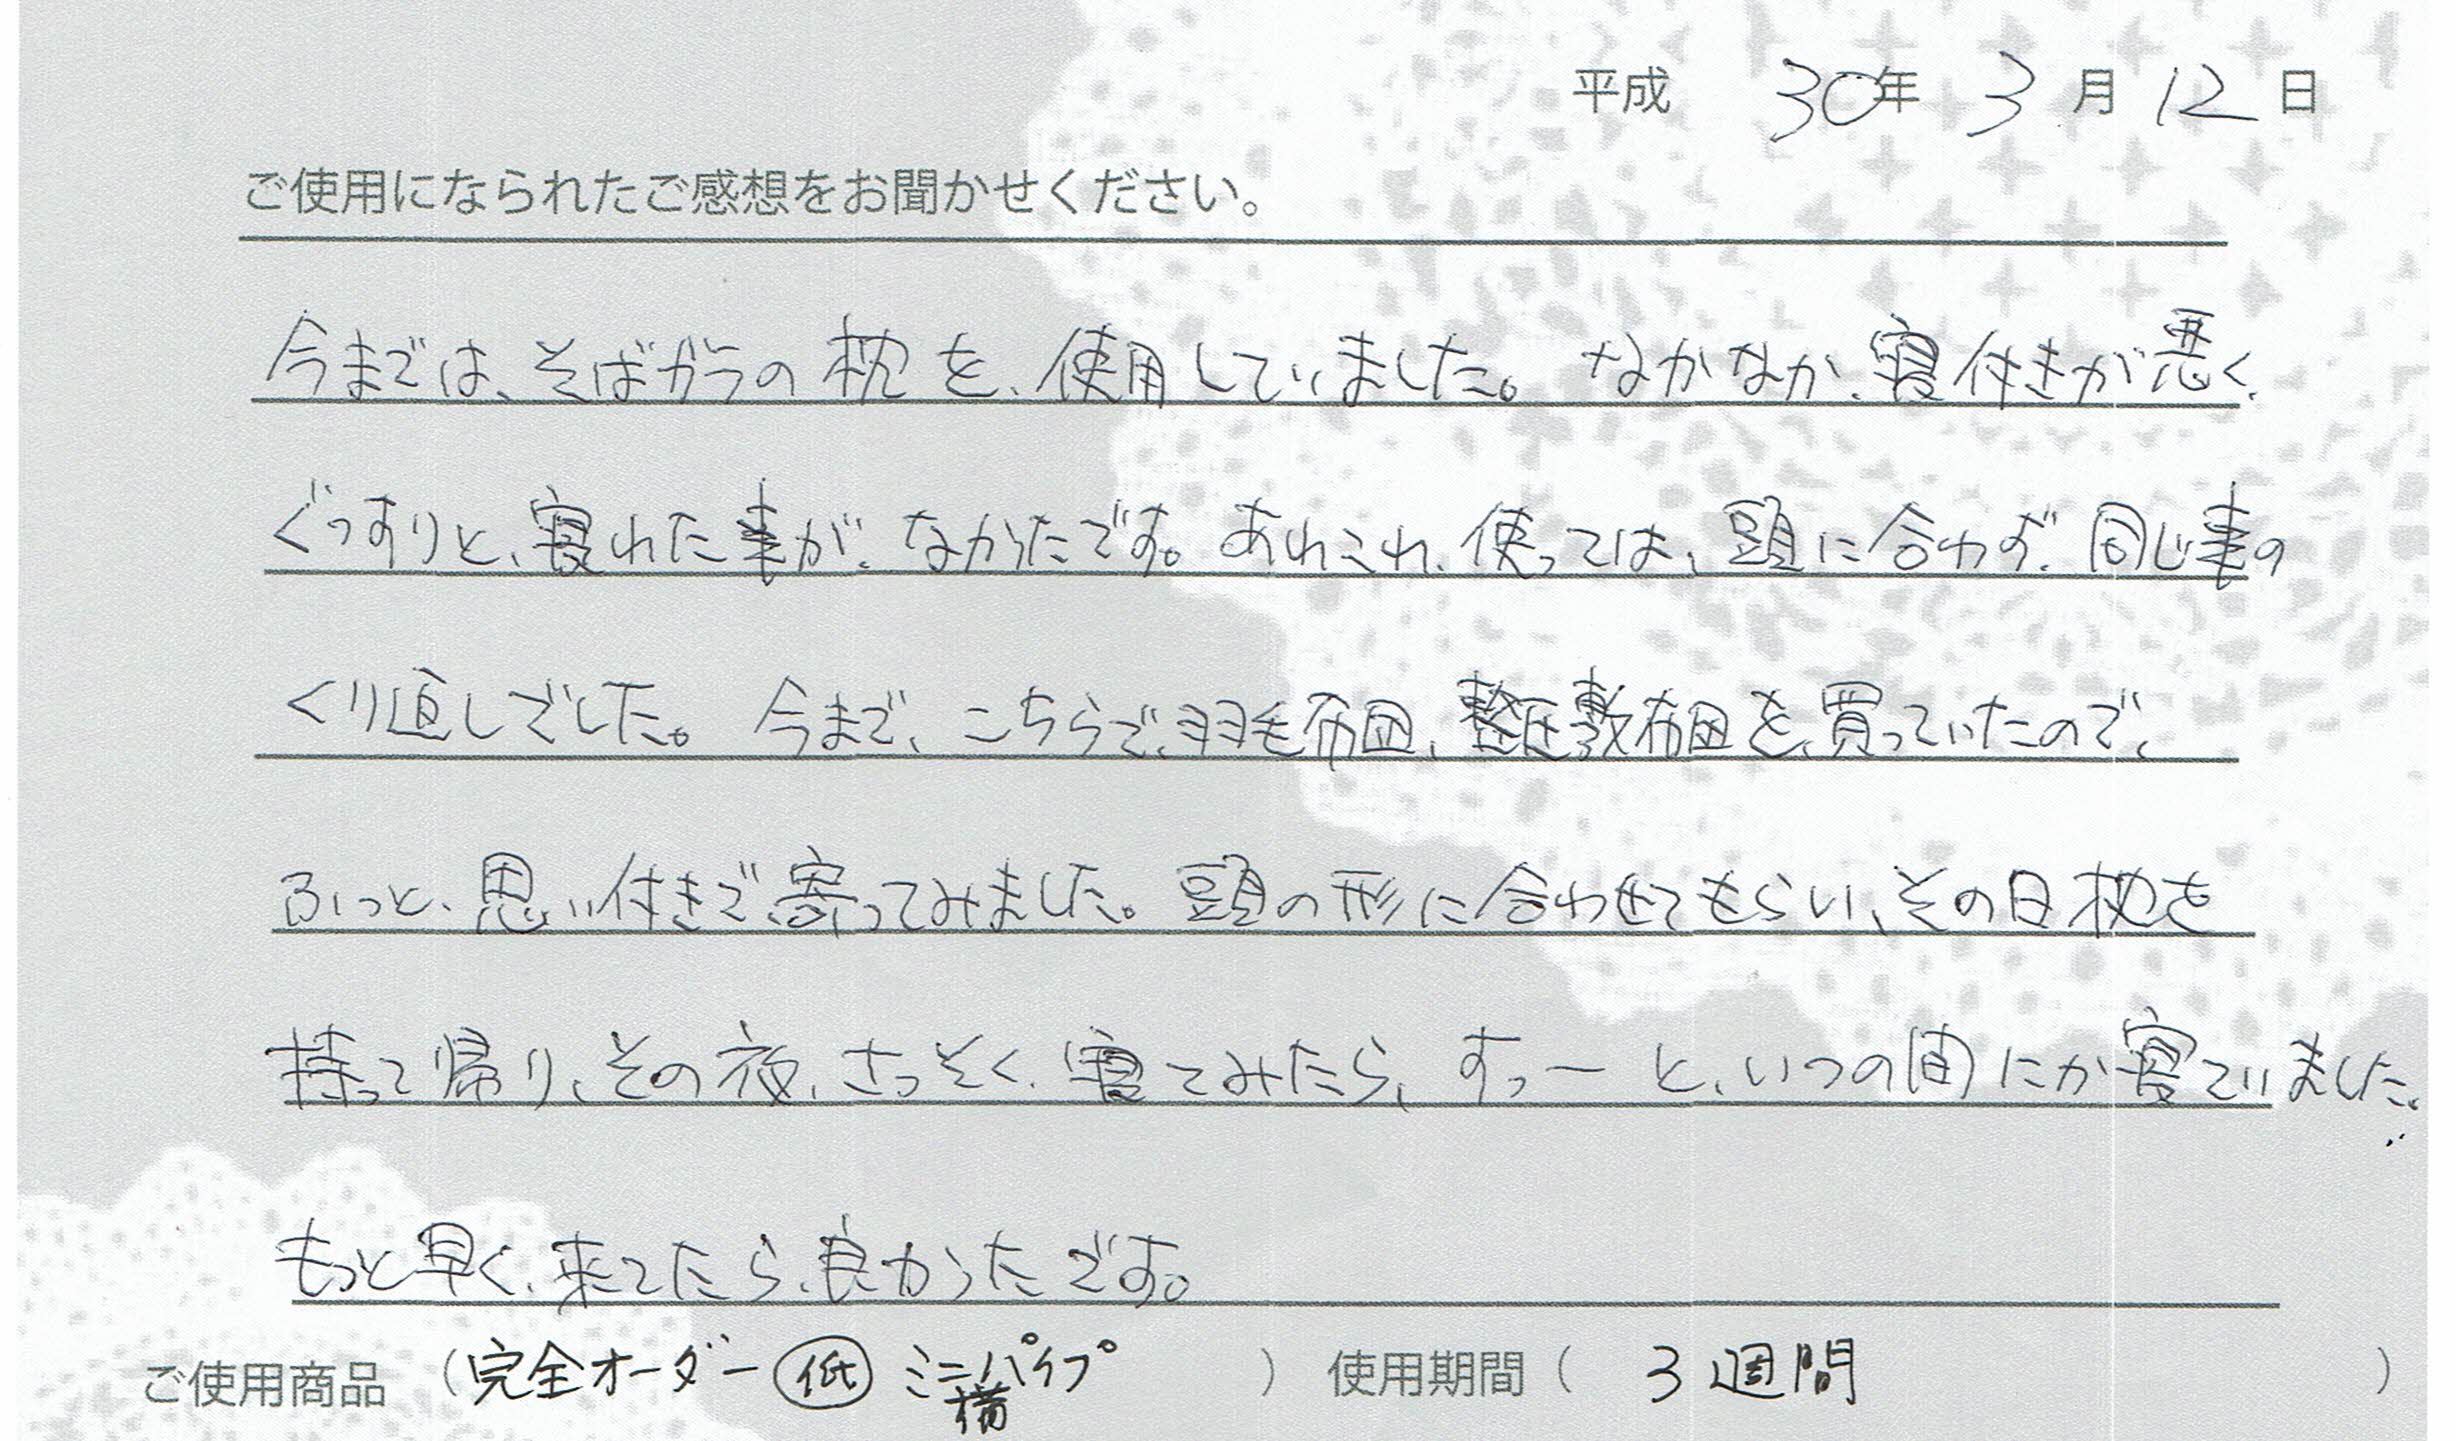 平成 30年 3月 12日
ご使用になられたご感想をお聞かせください。
今までは、そばがらの枕を、使用していました。なかなか、寝付きが悪く、
ぐっすりと、寝れた事が、なかったです。あれこれ、使っては、頭に合わず、同じ事の
くり返しでした。今まで、こちらで、羽毛布団、整圧敷布団を、買っていたので、
ふっと、思い付きで、寄ってみました。頭の形に合わせてもらい、その日枕を
持って帰り、その夜、さっそく、寝てみたら、すっーと、いつの間にか寝ていました。
もっと早く、来てたら、良かったです。
ご使用商品 (完全オーダー 低 ミニパイプ ) 使用期間 ( 3週間 )
横